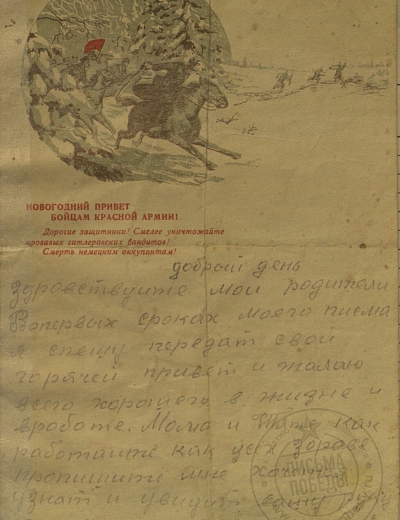 НОВОГОДНИЙ ПРИВЕТ
БОЙЦАМ КРАСНОЙ АРМИИ!
Дорогие защитники! Смелее уничтожайте
кровавых гитлеровских бандитов!
Смерть немецким оккупантам!
добрый день
Здравствуйте мои родители
Вопервых сроках моего писма
я спешу передат свой
горячей привет и жалаю
всего хорошего в жизне и
вработе. Мама и Тятя как
работаите как
пропишите мне
узнат и увидат вашу руку
ПИСЬМА
ПОБЕДЫ